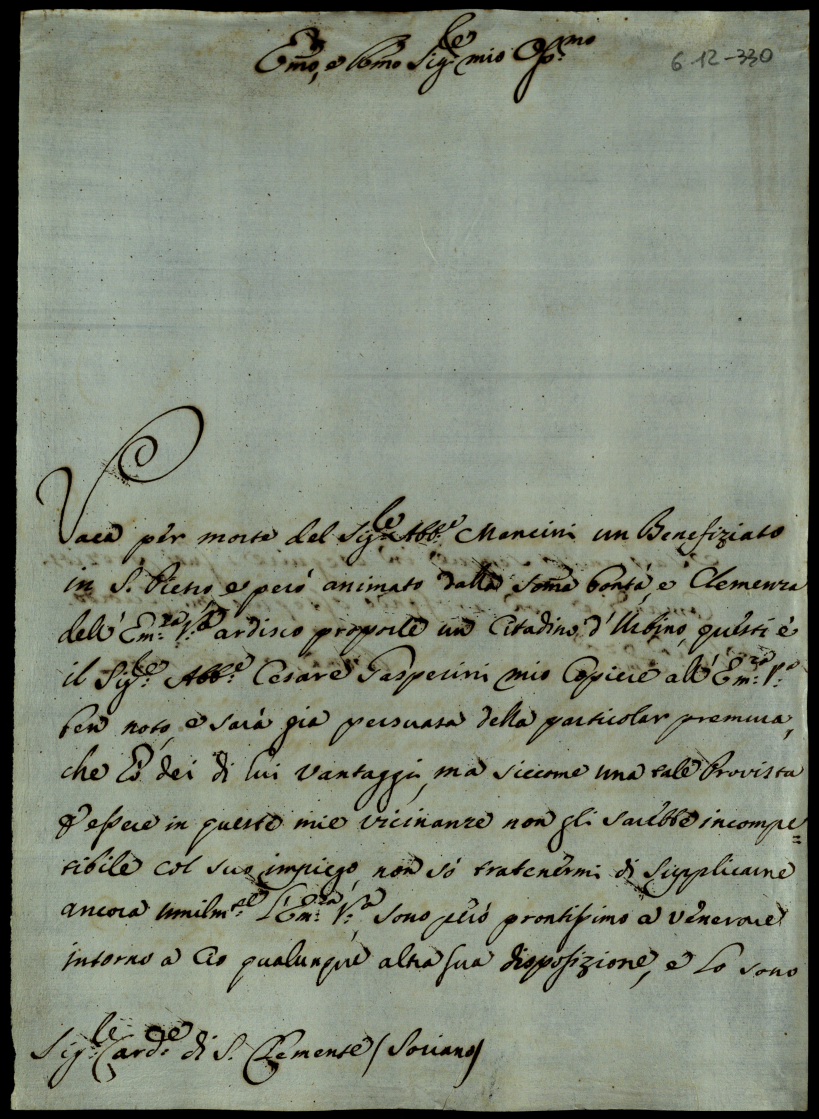 Em̃o, e Rm̃o Sig.re mio Oss.mo
6-12-330
Vaca per morte del Sig.re Abb.e Mancini un Benefiziato
in S. Pietro, e però animato dalla som̃a bontà, e Clemenza
dell'Em.za V.ra ardisco proporle un Citadino d'Urbino, questi è
il Sig.re Abb.e Cesare Gasperini mio Copiere all'Em.za V.a
ben noto, e sarà gia persuasa della particolar premura,
che Hò dei di lui vantaggi, ma siccome una tale Provista
p essere in queste mie vicinanze non gli sarebbe incompa=
tibile col suo impiego, non sò tratenermi di supplicarne
ancora umilm.te l'Em.za V.ra sono però prontissimo a venerare
intorno a Cio qualunque altra sua disposizione, e Lo sono
Sig.re Card.e di S. Clemente (Soriano)